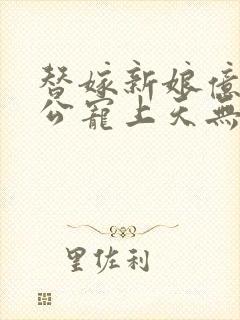 替嫁新娘億
公寵上天無
里佐利